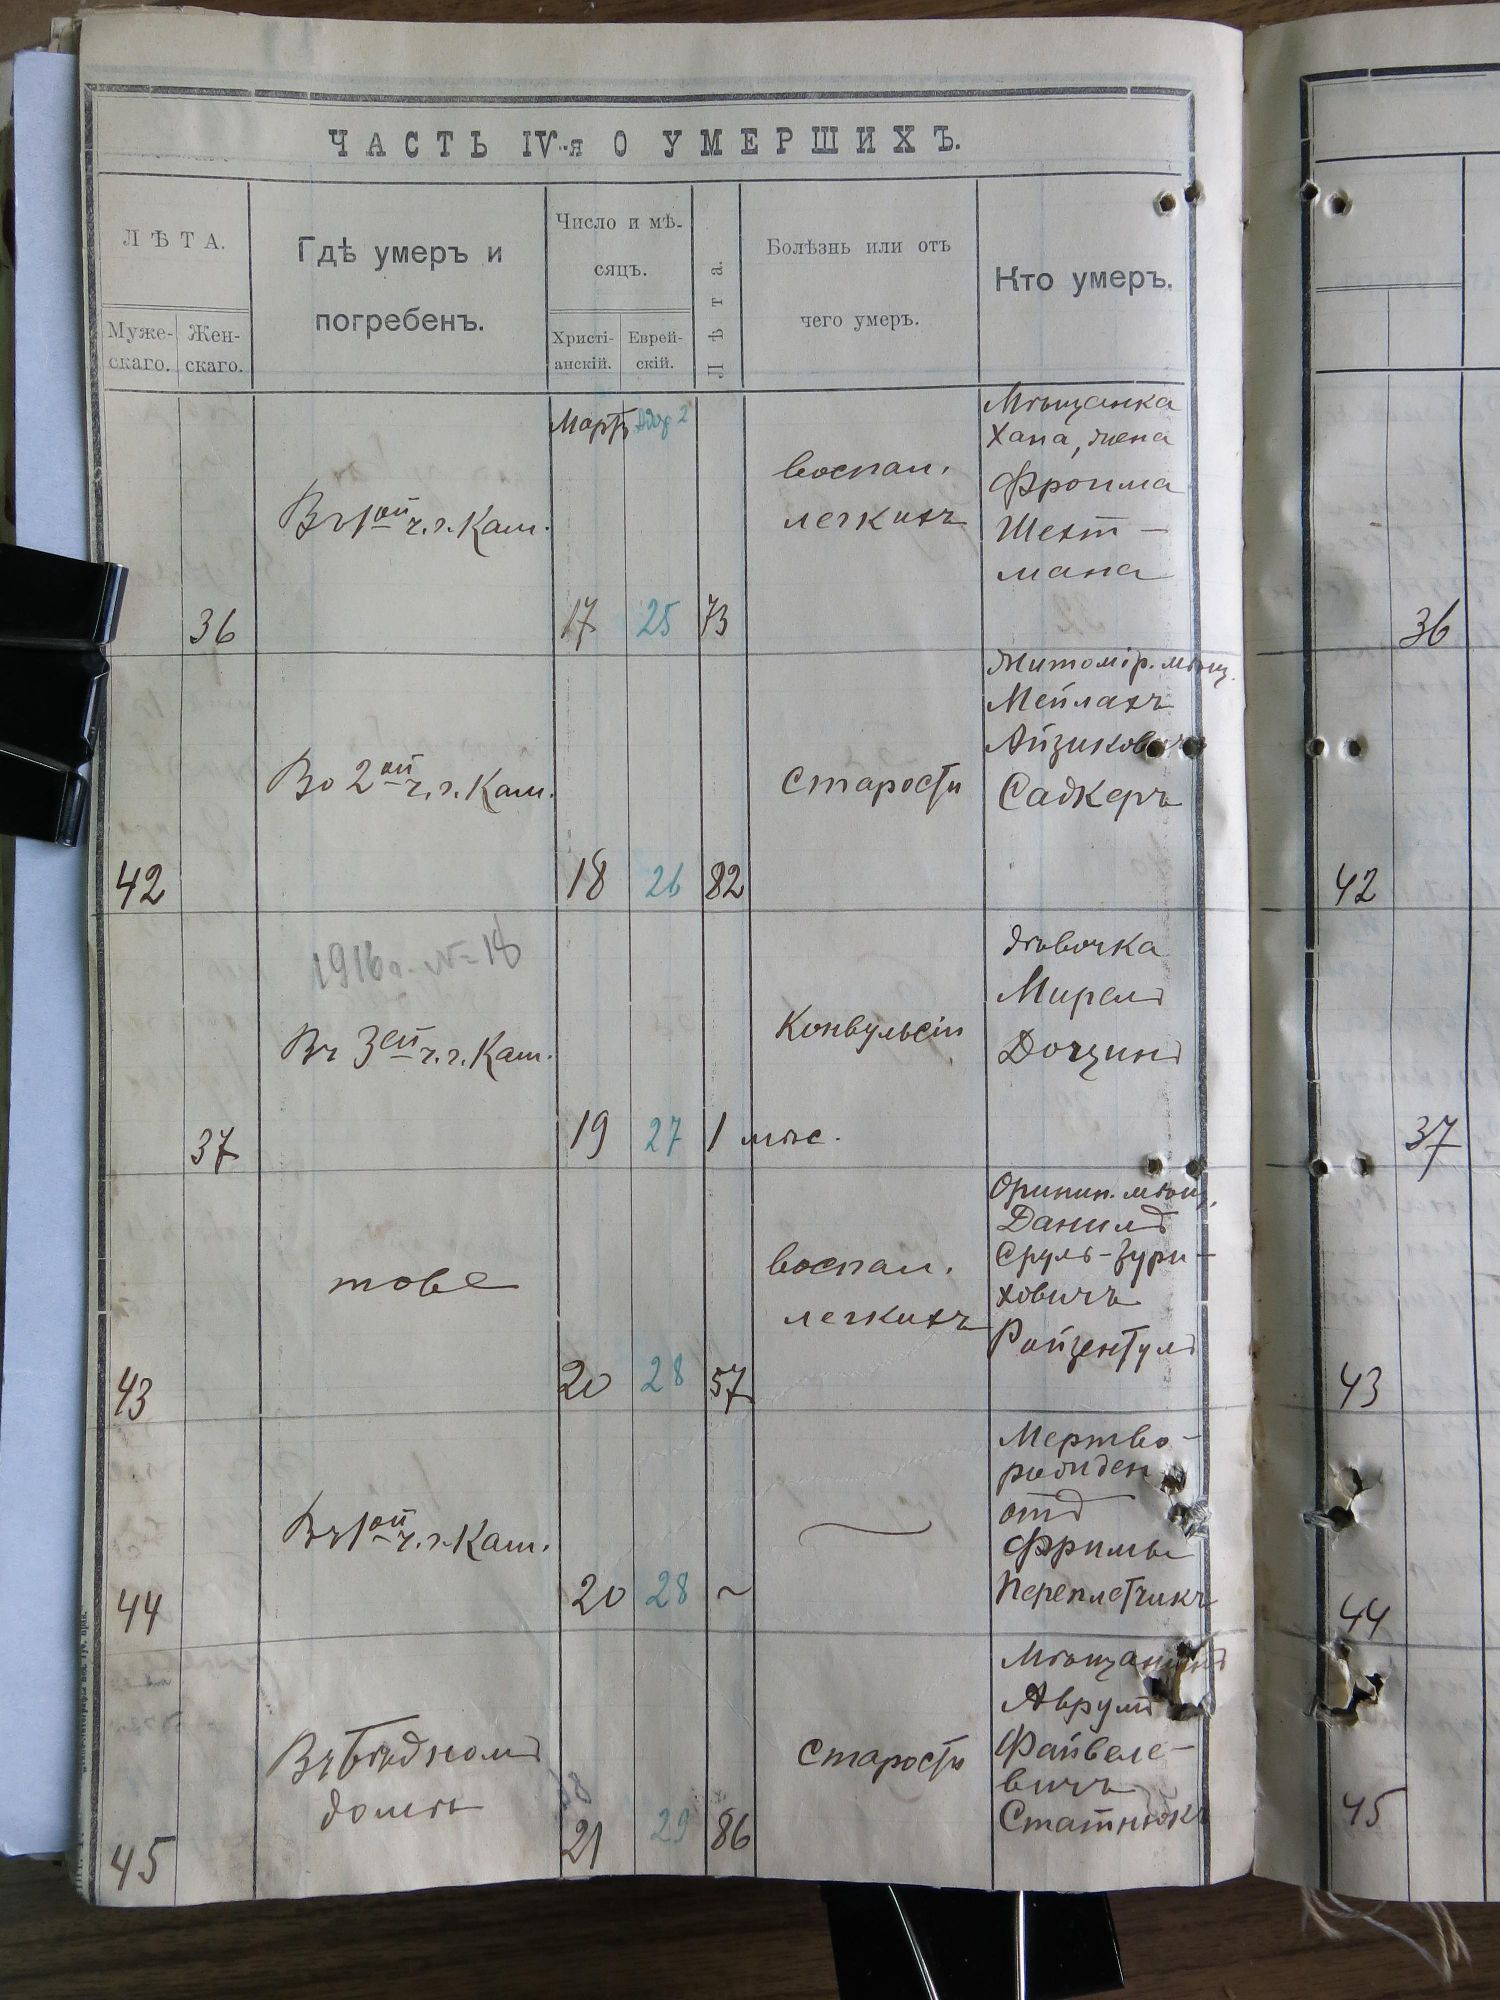 ЧАСТЬ IV-я О УМЕРШИХЪ.
ЛѢТА.
Муже-
скаго.
Жен-
скаго.
Гдѣ умеръ и
погребенъ.
Число и мѣ-
сяцъ.
Христі-
анскій.
Еврей-
скій.
Лѣта.
Болѣзнь или отъ
чего умеръ.
Кто умеръ.
36
Въ 1ой ч. г. Кам.
Мартъ
17
Адар 2
25
73
воспал.
легкихъ
Мѣщанка
Хана, жена
Фроима
Шехт-
мана
42
Во 2ой ч. г. Кам.
18
26
82
старости
Житомір. мѣщ.
Мейлахъ
Айзиковичъ
Садкеръ
37
1916 г. № 18
Въ 3ей ч. г. Кам.
19
27
1 мѣс.
Конвульсіи
дѣвочка
Мирель
43
тоже
20
28
57
воспал.
легкихъ
Оринин. мѣщ.
Данилъ
Сруль-Зури-
ховичъ
Ройзентулъ
44
Въ 1ой ч. г. Кам.
20
28
~
Мертво-
рожден
отъ
Фримы
Переплетчикъ
45
Въ бѣдномъ
домѣ
21
29
86
старости
Мѣщанинъ
Аврумъ
Файвеле-
вичъ
Статнюкъ
36
42
37
43
44
45